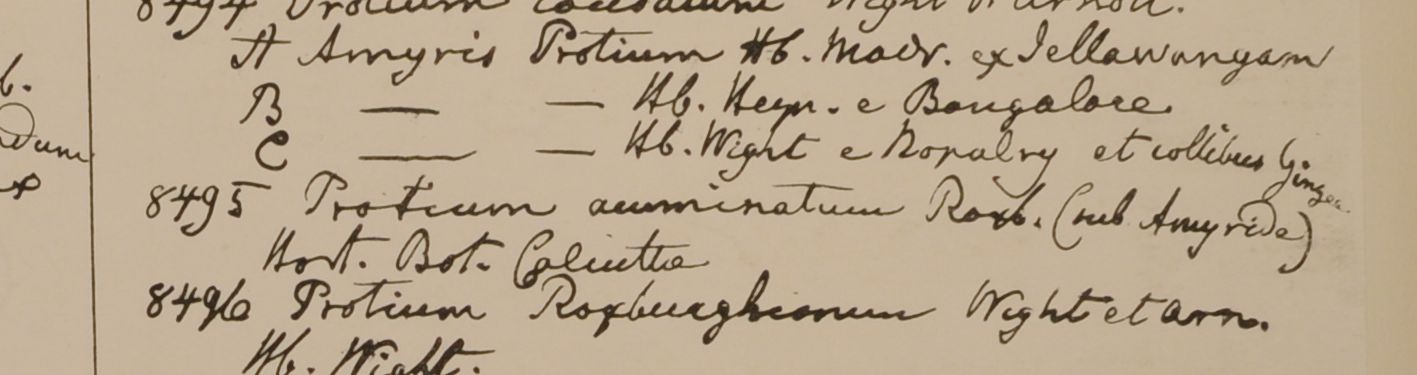 8494 Protium caudatum Wight et Arnott.
A Amyris Protium Hb. Madr. ex Jellawungam
B — — Hb. Heyn. e Bangalore
C — — Hb. Wight e et collibus Gingee
8495 Protium acuminatum Roxb. (sub Amyride)
Hort. Bot. Calcutta
8496 Protium Roxburghianum Wight et Arn.
Hb. Wight.
b.
dum